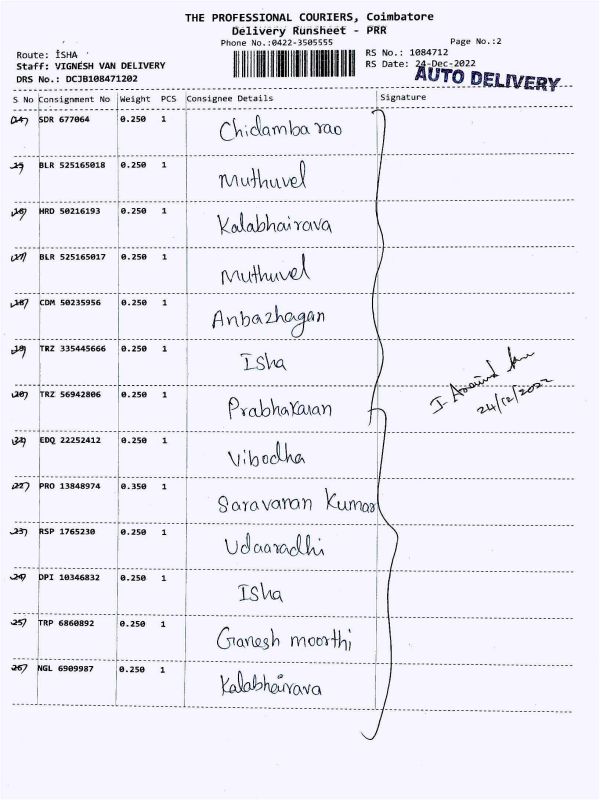 THE PROFESSIONAL COURIERS, Coimbatore
Delivery Runsheet - PRR
Phone No.:0422-3505555 Page No.:2
Route: ISHA RS No.: 1084712
Staff: VIGNESH VAN DELIVERY RS Date: 24-Dec-2022
DRS No.: DCJB108471202 AUTO DELIVERY
S No Consignment No Weight PCS Consignee Details Signature
14 SDR 677064 0.250 1 Chidambarao
15 BLR 525165018 0.250 1 Muthuvel
16 HRD 50216193 0.250 1 Kalabhairava
17 BLR 525165017 0.250 1 Muthuvel
18 CDM 50235956 0.250 1 Anbazhagan
19 TRZ 335445666 0.250 1 Isha
20 TRZ 56942806 0.250 1 Prabhakaran
21 EDQ 22252412 0.250 1 Vibodha
22 PRO 13848974 0.350 1 Saravanan Kumar
23 RSP 1765230 0.250 1 Udaaradhi
24 DPI 10346832 0.250 1 Isha
25 TRP 6860892 0.250 1 Ganesh moorthi
26 NGL 6909987 0.250 1 Kalabhairava
24/12/2022